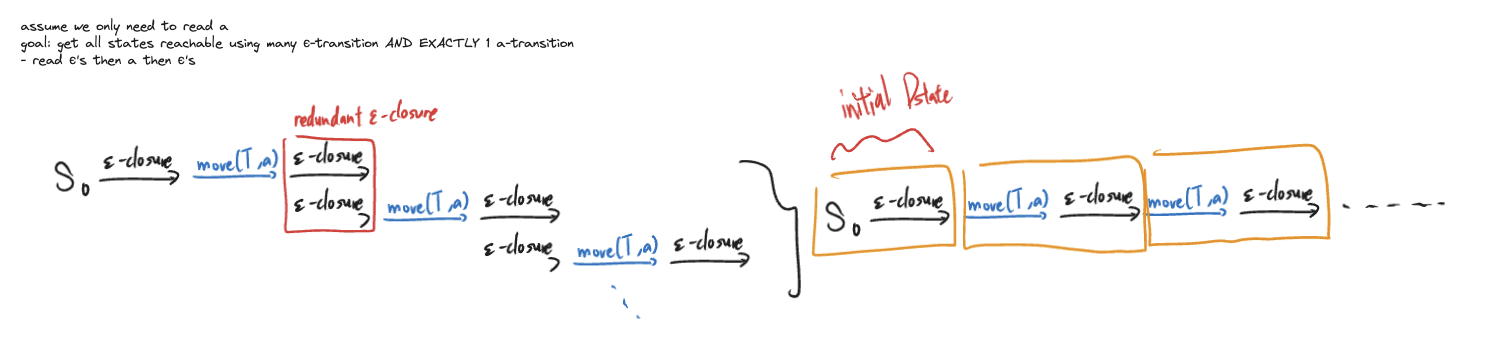 assume we only need to read a
goal: get all states reachable using many ε-transition AND EXACTLY 1 a-transition
- read ε's then a then ε's
redundant ε-closure
S₀ ε-closure move(T,a) ε-closure
ε-closure move(T,a) ε-closure
ε-closure move(T,a) ε-closure
initial Dstate
S₀ ε-closure move(T,a) ε-closure move(T,a) ε-closure